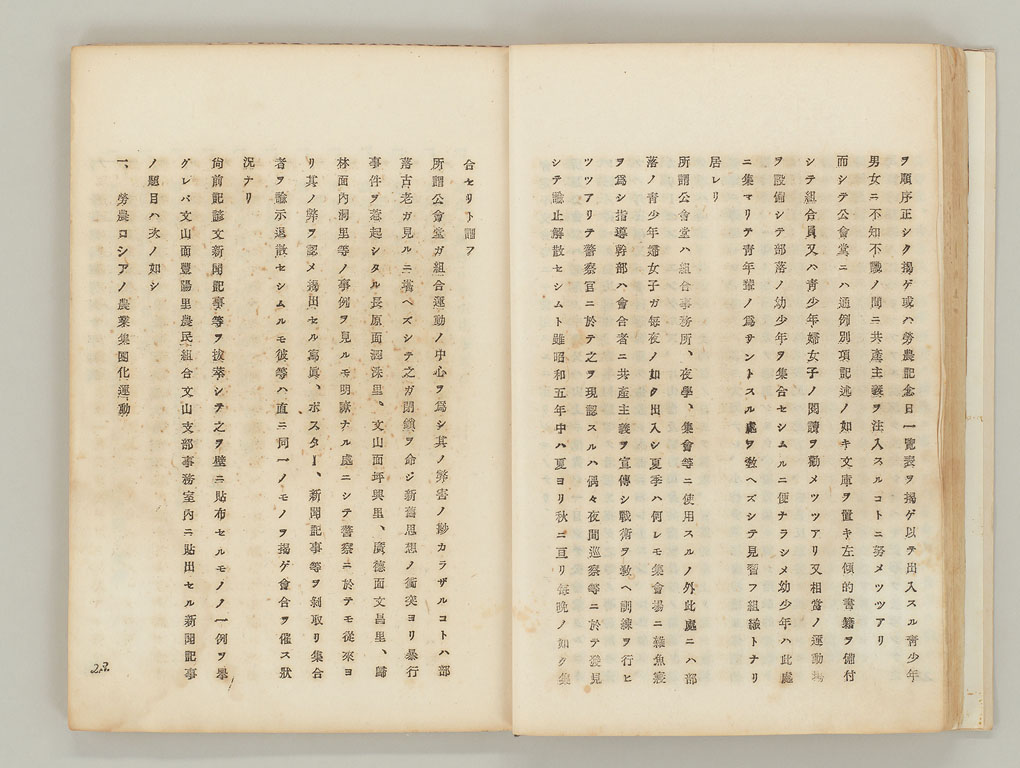 ヲ順序正シク揭ゲ或ハ勞農記念日一覽表ヲ揭ゲ以テ出入スル靑少年
男女ニ不知不識ノ間ニ共產主義ヲ注入スルコトニ努メツツアリ
而シテ公會堂ニハ通例別項記述ノ如キ文庫ヲ置キ左傾的書籍ヲ備付
シテ組合員又ハ靑少年婦女子ノ閱讀ヲ勸メツツアリ又相當ノ運動場
ヲ設備シテ部落ノ幼少年ヲ集合セシムルニ便ナラシメ幼少年ハ此處
ニ集マリテ靑年輩ノ爲サントスル處ヲ敎ヘズシテ見習フ組織トナリ
居レリ
所謂公會堂ハ組合事務所、夜學、集會等ニ使用スルノ外此處ニハ部
落ノ靑少年婦女子ガ每夜ノ如ク出入シ夏季ハ何レモ集會場ニ雜魚寢
ヲ爲シ指導幹部ハ會合者ニ共產主義ヲ宣傳シ戰術ヲ敎ヘ訓練ヲ行ヒ
ツツアリテ警察官ニ於テ之ヲ現認スルハ偶々夜間巡察等ニ於テ發見
シテ諭止解散セシムト雖昭和五年中ハ夏ヨリ秋ニ亘リ每晚ノ如ク集
合セリト謂フ
所謂公會堂ガ組合運動ノ中心ヲ爲シ其ノ弊害ノ尠カラザルコトハ部
落古老ガ見ルニ堪ヘズシテ之ガ閉鎖ヲ命ジ新舊思想ノ衝突ヨリ暴行
事件ヲ惹起シタル長原面認洙里、文山面坪興里、廣德面文昌里、歸
林面內洞里等ノ事例ヲ見ルモ明瞭ナル處ニシテ警察ニ於テモ從來ヨ
リ其ノ弊ヲ認メ揭出セル寫眞、ポスター、新聞記事等ヲ剝取リ集合
者ヲ諭示退散セシムルモ彼等ハ直ニ同一ノモノヲ揭ゲ會合ヲ催ス狀
況ナリ
尙前記諺文新聞記事等ヲ拔萃シテ之ヲ壁ニ貼布セルモノノ一例ヲ擧
グレバ文山面豐陽里農民組合文山支部事務室內ニ貼出セル新聞記事
ノ題目ハ次ノ如シ
一、勞農ロシアノ農業集團化運動